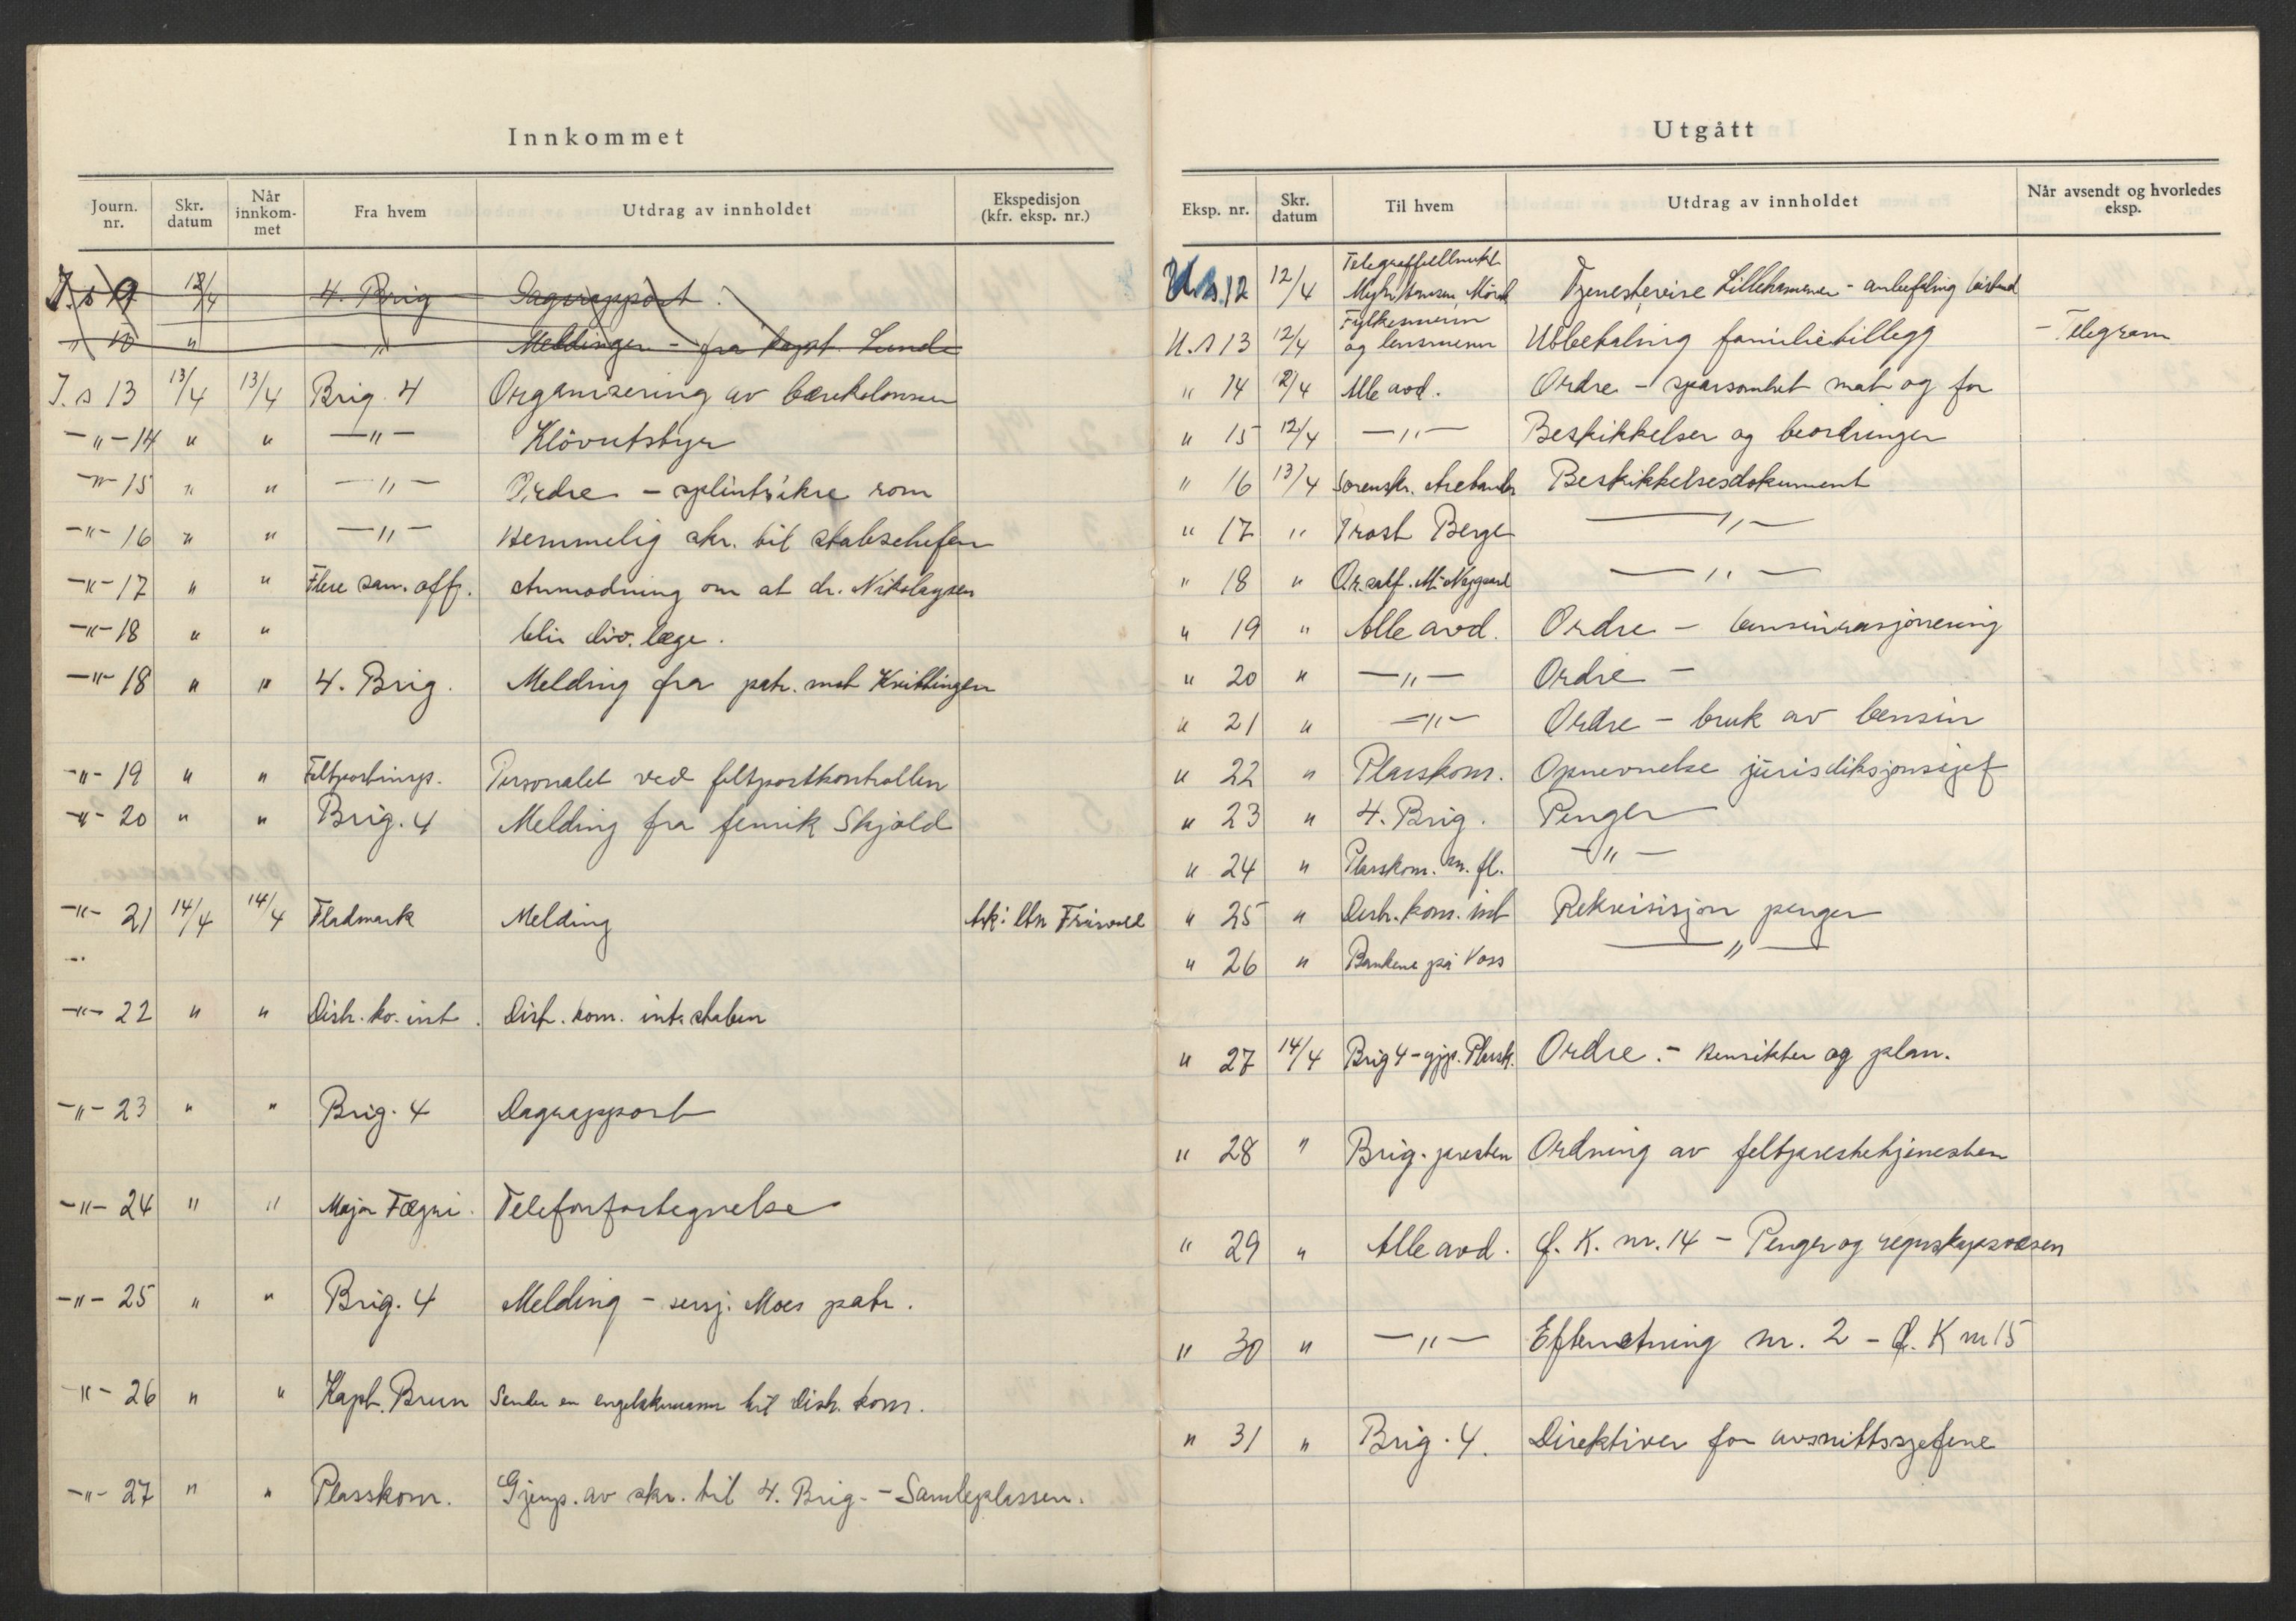 Innkommet
Journ. nr. Skr. datum Når innkom-met Fra hvem Utdrag av innholdet Ekspedisjon (kfr. eksp. nr.)
J. s 9 12/4 4. Brig Dagsrapport.
" 10 " " Meldinger - fra kapt. Lunde
J. s 13 13/4 13/4 Brig. 4 Organisering av bærekolonner
-"- 14 " " -"- Klövutstyr
-"- 15 " " -"- Ordre - splintsikre rom
-"- 16 " " -"- Hemmelig skr. til stabschefen
-"- 17 " " Flere san. off. Anmodning om at dr. Nikolaysen
-"- 18 " " blir div. læge.
-"- 18 " " 4. Brig. Melding fra patr. mot Kvittingen
-"- 19 " " Feltpostinsp. Personalet ved feltpostkontrollen
-"- 20 " " Brig. 4 Melding fra fenrik Skjold
-"- 21 14/4 14/4 Fladmark Melding Ark: ltn Frisvold
-"- 22 " " Distr. ko. int. Distr. kom. int. staben
-"- 23 " " Brig. 4 Dagrapport
-"- 24 " " Major Fægri. Telefonfortegnelse
-"- 25 " " Brig. 4 Melding - sersj. Moes patr.
-"- 26 " " Kapt. Brun Sender en engelskmann til distr. kom.
-"- 27 " " Plasskom. Gjenp. av skr. til 4. Brig. - Samleplassen.
Utgått
Eksp. nr. Skr. datum Til hvem Utdrag av innholdet Når avsendt og hvorledes eksp.
U.s. 12 12/4 Mørch Tjenestereise Lillehammer - anbefaling bistand
Fylkesmenn
U.s 13 12/4 og lensmenn Utbetaling familietillegg - Telegram
" 14 12/4 Alle avd. Ordre - sparsomhet mat og for
" 15 12/4 -"- Beskikkelser og beordringer
" 16 13/4 Sorenskr. Beskikkelsesdokument
" 17 " Prost Berge -"-
" 18 " O.r.sakf. M. Nygaard -"-
" 19 " Alle avd. Ordre - bensinrasjonering
" 20 " -"- Ordre -
" 21 " -"- Ordre - bruk av bensin
" 22 " Plasskom. Opnevnelse jurisdiksjonssjef
" 23 " 4. Brig. Penger
" 24 " Plasskom. m. fl. -"-
" 25 " Distr. kom. int Rekvisisjon penger
" 26 " Bankene på Voss -"-
" 27 14/4 Brig 4 - gjp. Plassk. Ordre. - hensikter og plan.
" 28 " Brig. presten Ordning av feltprestetjenesten
" 29 " Alle avd. d. K. nr. 14 - Penger og regnskapsvæsen
" 30 " -"- Efterretning nr. 2 - d. K nr 15
" 31 " Brig. 4. Direktiver for avsnittssjefene